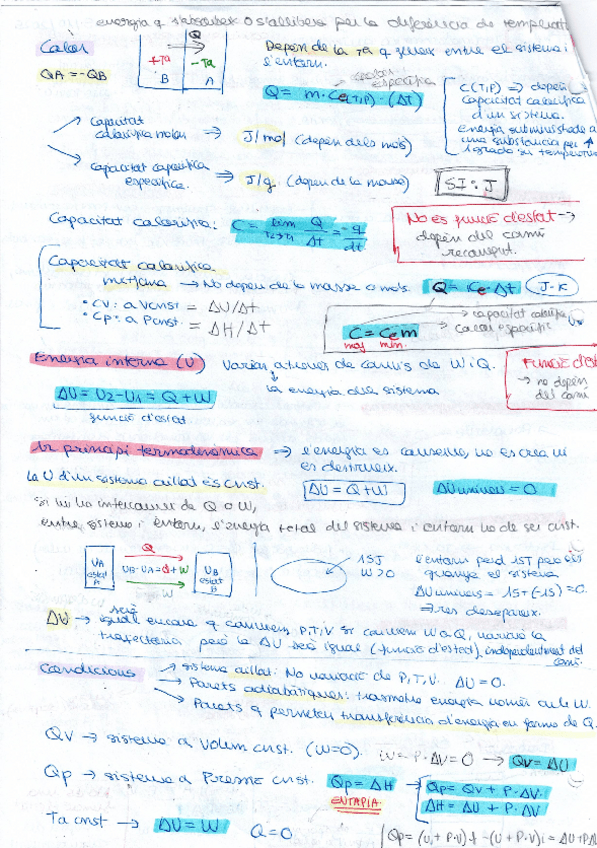 energia q s'absorbeix o s'allibera per la diferència de temperatu
Calor
QA = -QB
Q
+Ta
-Ta
B
A
Depèn de la Ta q hi entre el sistema i
l'entorn.
calor
específica
Q = m · Ce(T,P) · (Δt)
C(T,P) ⇒ depèn
capacitat calorífica
d'un sistema.
Energia subministrada a
una substància per ↑
1 grado su temperatur
capacitat
calorífica molar → J/mol (depèn dels mols)
capacitat calorífica
específica. → J/g. (depèn de la massa)
SI: J
Capacitat calorífica: C = lim Q/Δt = -q/dt
T2→T1
No és funció d'estat →
depèn del camí
recorregut.
Capacitat calorífica
mitjana → No depèn de la massa o mols.
Q = Ce · Δt
J-K
• Cv: a Vcnst = ΔU/Δt
• Cp: a Pcnst = ΔH/Δt
C = Ce m
maj min.
capacitat calorífica
calor específic
Energia interna (U) Varia a través de canvis de W i Q.
la energia del sistema
ΔU = U2-U1 = Q + W
funció d'estat
Funció d'est
→ no depèn
del camí
1r principi termodinàmica → l'energia es conserva, no es crea ni
es destrueix.
La U d'un sistema aïllat és cnst.
ΔU = Q + W
ΔUunivers = 0
Si hi ha intercanvi de Q o W,
entre sistema i entorn, l'energia total del sistema i entorn ha de ser cnst.
UA
estat
A
Q
UB-UA = Q+W
W
UB
estat
B
15J
W>0
l'entorn perd 15J però els
guanya el sistema
ΔUunivers = 15+(-15)=0.
⇒ res desapareix.
serà
ΔU → igual encara q canviem P,T,V. Si canviem W o Q, variarà la
trajectòria però la ΔU serà igual (funció d'estat), independentment del
camí.
Condicions
→ Sistema aïllat: No variació de P,T,V. ΔU = 0.
→ Parets adiabàtiques: transmetre energia només amb W.
→ Parets q permeten transferència d'energia en forma de Q.
Qv → sistema a volum cnst. (W=0). W = -P·ΔV = 0 → Qv = ΔU
Qp → sistema a Pressió cnst. Qp = ΔH
ENTALPIA
Qp = Qv + P·ΔV.
ΔH = ΔU + P·ΔV
Ta cnst → ΔU = W Q=0.
Qp = (U + P·V)f - (U + P·V)i = ΔU + PΔ